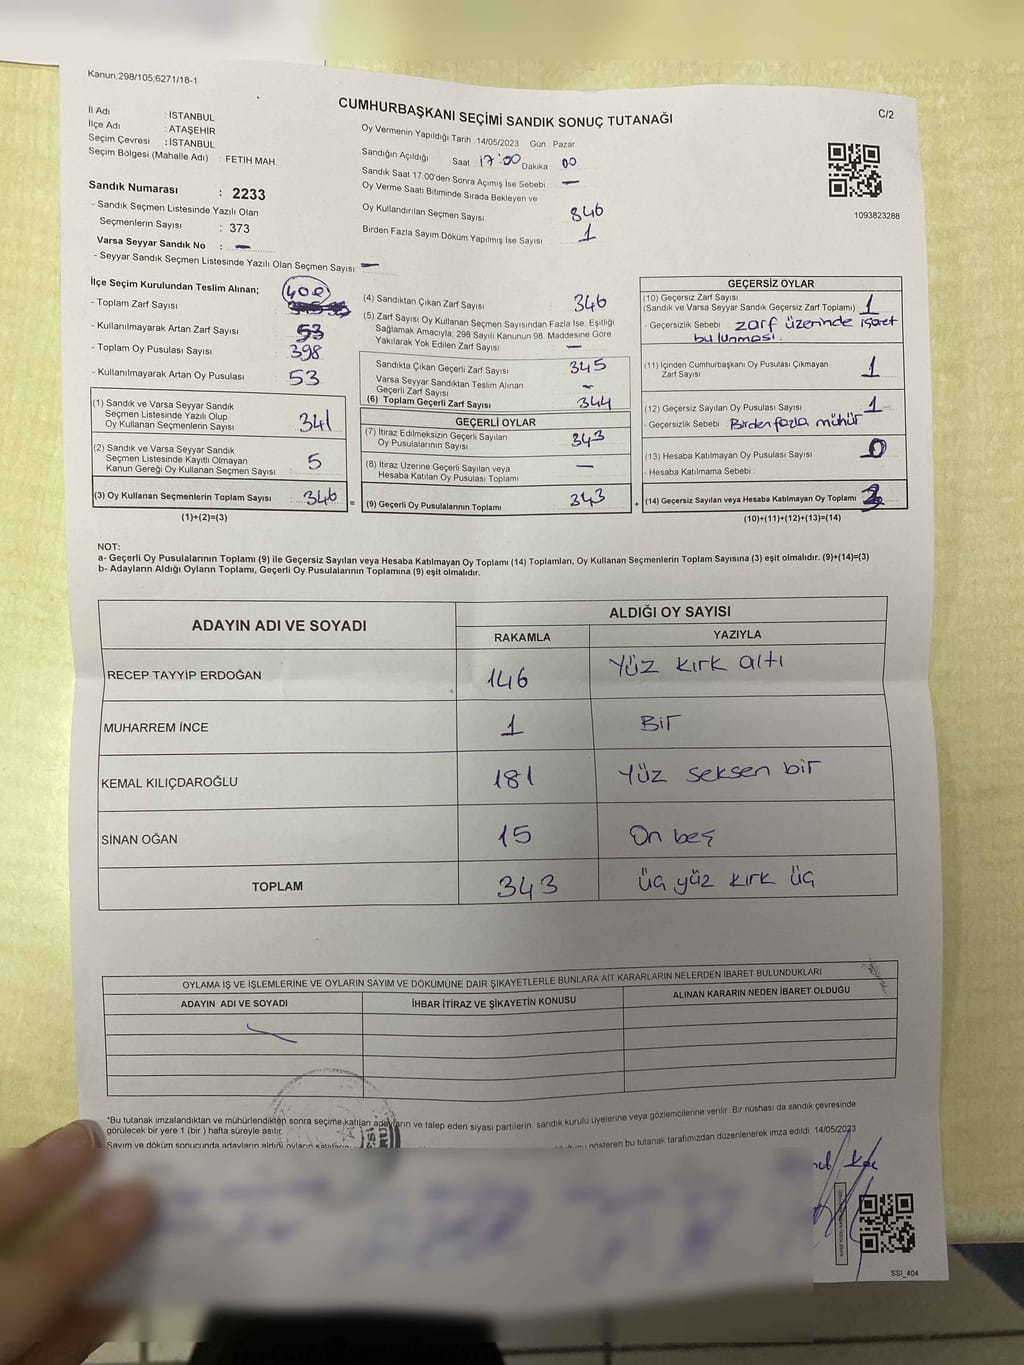 Kanun.298/105,6271/18-1
CUMHURBAŞKANI SEÇİMİ SANDIK SONUÇ TUTANAĞI
C/2
İl Adı : İSTANBUL
İlçe Adı : ATAŞEHİR
Seçim Çevresi : İSTANBUL
Seçim Bölgesi (Mahalle Adı) : FETİH MAH.
Oy Vermenin Yapıldığı Tarih : 14/05/2023 Gün Pazar
Sandığın Açıldığı Saat 17:00 Dakika 00
Sandık Saat 17.00'den Sonra Açımış İse Sebebi —
Oy Verme Saati Bitiminde Sırada Bekleyen ve
Oy Kullandırılan Seçmen Sayısı 346
Birden Fazla Sayım Döküm Yapılmış İse Sayısı 1
1093823288
Sandık Numarası : 2233
- Sandık Seçmen Listesinde Yazılı Olan
Seçmenlerin Sayısı : 373
Varsa Seyyar Sandık No : —
- Seyyar Sandık Seçmen Listesinde Yazılı Olan Seçmen Sayısı: —
İlçe Seçim Kurulundan Teslim Alınan;
- Toplam Zarf Sayısı : 400
- Kullanılmayarak Artan Zarf Sayısı : 53
- Toplam Oy Pusulası Sayısı : 398
- Kullanılmayarak Artan Oy Pusulası : 53
(1) Sandık ve Varsa Seyyar Sandık
Seçmen Listesinde Yazılı Olup
Oy Kullanan Seçmenlerin Sayısı : 341
(2) Sandık ve Varsa Seyyar Sandık
Seçmen Listesinde Kayıtlı Olmayan
Kanun Gereği Oy Kullanan Seçmen Sayısı : 5
(3) Oy Kullanan Seçmenlerin Toplam Sayısı : 346 =
(1)+(2)=(3)
(4) Sandıktan Çıkan Zarf Sayısı 346
(5) Zarf Sayısı Oy Kullanan Seçmen Sayısından Fazla İse, Eşitliği
Sağlamak Amacıyla; 298 Sayılı Kanunun 98. Maddesine Göre
Yakılarak Yok Edilen Zarf Sayısı —
Sandıkta Çıkan Geçerli Zarf Sayısı 345
Varsa Seyyar Sandıktan Teslim Alınan
Geçerli Zarf Sayısı —
(6) Toplam Geçerli Zarf Sayısı 344
GEÇERLİ OYLAR
(7) İtiraz Edilmeksizin Geçerli Sayılan
Oy Pusulalarının Sayısı 343
(8) İtiraz Üzerine Geçerli Sayılan veya
Hesaba Katılan Oy Pusulası Toplamı —
(9) Geçerli Oy Pusulalarının Toplamı 343 +
GEÇERSİZ OYLAR
(10) Geçersiz Zarf Sayısı
(Sandık ve Varsa Seyyar Sandık Geçersiz Zarf Toplamı) 1
- Geçersizlik Sebebi : zarf üzerinde işaret
bulunması.
(11) İçinden Cumhurbaşkanı Oy Pusulası Çıkmayan
Zarf Sayısı 1
(12) Geçersiz Sayılan Oy Pusulası Sayısı 1
- Geçersizlik Sebebi : Birden fazla mühür
(13) Hesaba Katılmayan Oy Pusulası Sayısı 0
- Hesaba Katılmama Sebebi :
(14) Geçersiz Sayılan veya Hesaba Katılmayan Oy Toplamı 3
(10)+(11)+(12)+(13)=(14)
NOT:
a- Geçerli Oy Pusulalarının Toplamı (9) ile Geçersiz Sayılan veya Hesaba Katılmayan Oy Toplamı (14) Toplamları, Oy Kullanan Seçmenlerin Toplam Sayısına (3) eşit olmalıdır. (9)+(14)=(3)
b- Adayların Aldığı Oyların Toplamı, Geçerli Oy Pusulalarının Toplamına (9) eşit olmalıdır.
ADAYIN ADI VE SOYADI
ALDIĞI OY SAYISI
RAKAMLA YAZIYLA
RECEP TAYYİP ERDOĞAN 146 Yüz kırk altı
MUHARREM İNCE 1 Bir
KEMAL KILIÇDAROĞLU 181 Yüz seksen bir
SİNAN OĞAN 15 On beş
TOPLAM 343 üç yüz kırk üç
OYLAMA İŞ VE İŞLEMLERİNE VE OYLARIN SAYIM VE DÖKÜMÜNE DAİR ŞİKAYETLERLE BUNLARA AİT KARARLARIN NELERDEN İBARET BULUNDUKLARI
ADAYIN ADI VE SOYADI İHBAR İTİRAZ VE ŞİKAYETİN KONUSU ALINAN KARARIN NEDEN İBARET OLDUĞU
*Bu tutanak imzalandıktan ve mühürlendikten sonra seçime katılan adayların ve talep eden siyasi partilerin sandık kurulu üyelerine veya gözlemcilerine verilir. Bir nüshası da sandık çevresinde
görülecek bir yere 1 (bir) hafta süreyle asılır.
Sayım ve döküm sonucunda adayların aldığı oyların gösteren bu tutanak tarafımızdan düzenlenerek imza edildi. 14/05/2023
SSI_404